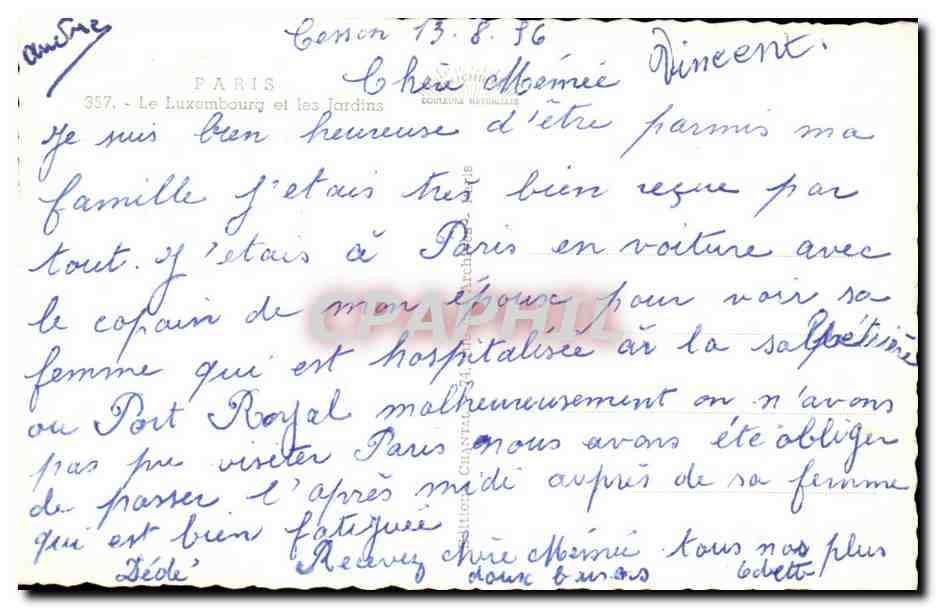 Cesson 13.8.96
Vincent.
Chère Mémée
PARIS
357. - Le Luxembourg et les Jardins
COULEURS NATURELLES
Je suis bien heureuse d'être parmis ma
famille J'etais très bien reçue par
tout. J'etais à Paris en voiture avec
le copain de mon époux pour voir sa
femme qui est hospitalisée à la salpétrière
ou Port Royal malheureusement on n'avons
pas pu visiter Paris nous avons été obliger
de passer l'après midi auprès de sa femme
qui est bien fatiguée
Recevez chère Mémée tous nos plus
doux baisers
Dédé Odette
CPAPHIL